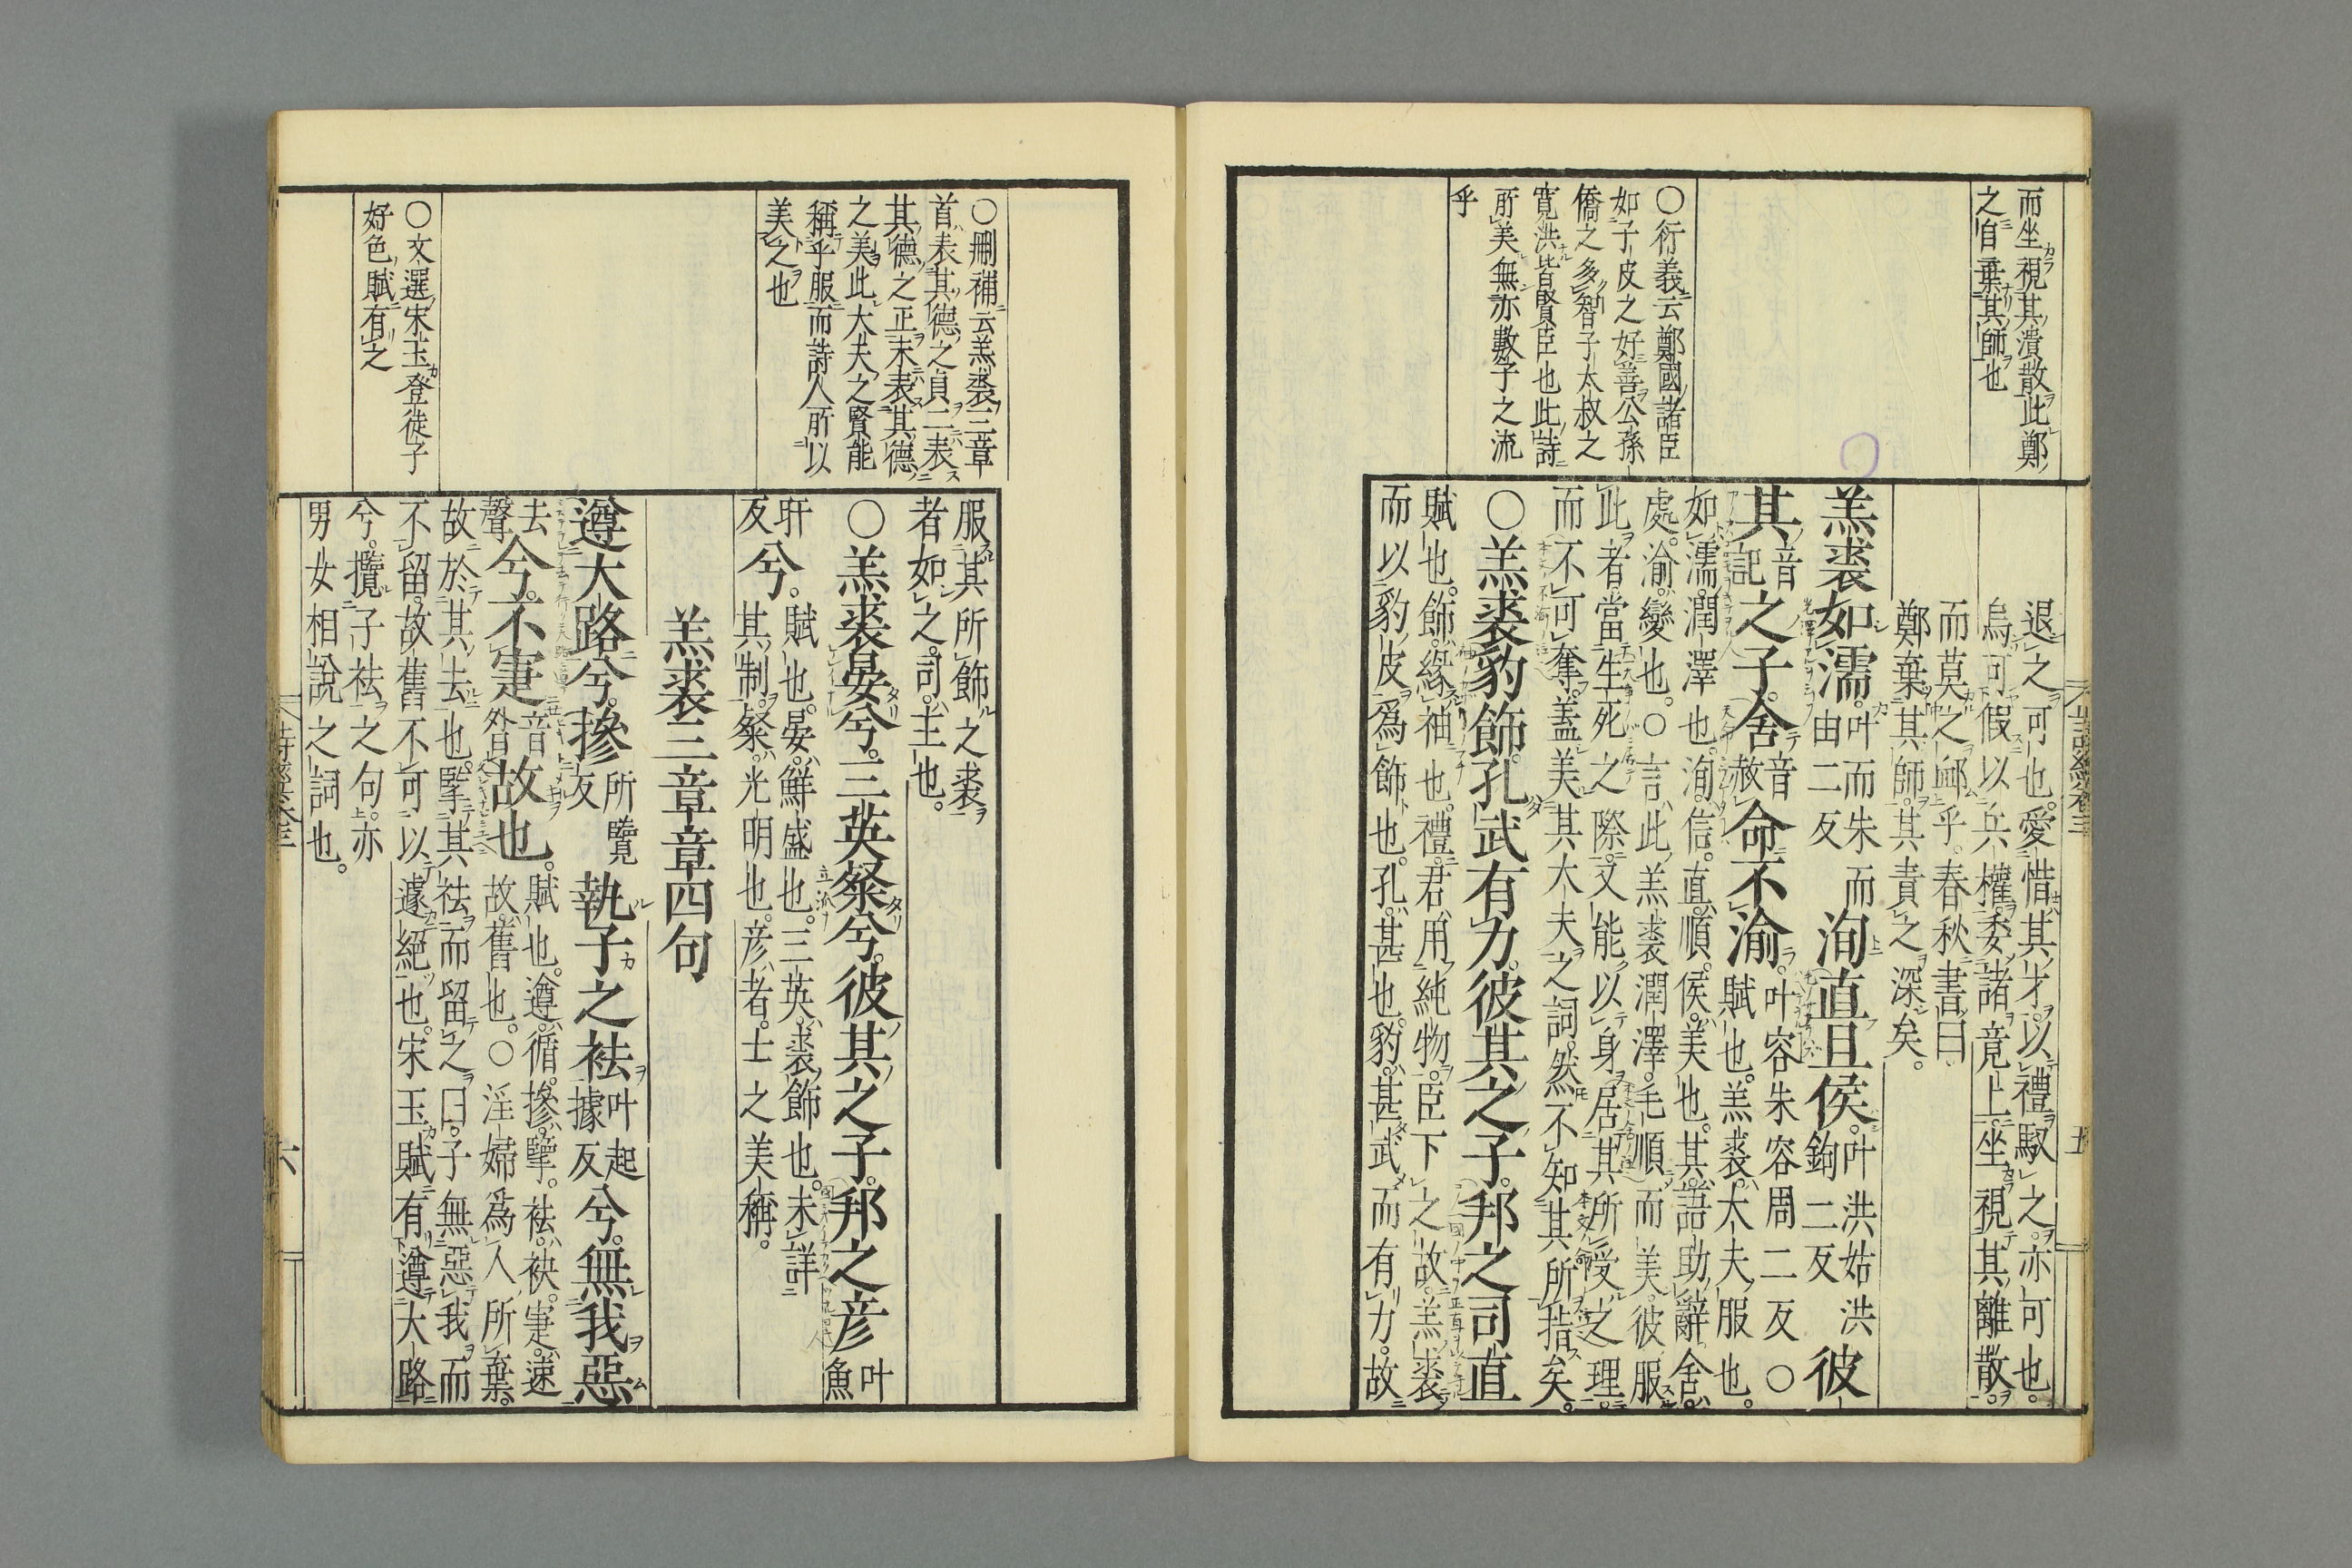 而坐視其潰散此鄭
之自棄其師也
○衍義云鄭國諸臣
如子皮之好善公孫
僑之多智子太叔之
寛洪皆賢臣也此詩
所美無亦數子之流
乎
退之可也。愛惜其才。以禮馭之。亦可也。
烏可假以兵權。委諸竟上。坐視其離散。
而莫之邺乎。春秋書曰。
鄭棄其師。其責之深矣。
羔裘如濡。叶而朱而由二反洵直且侯。叶洪姑洪鉤二反彼
其音記之子。舍音赦命不渝。叶容朱容周二反○
賦也。羔裘。大夫服也。
如濡。潤澤也。洵。信。直。順。侯。美也。其。語助辭。舍。
處。渝。變也。○言此羔裘潤澤。毛順而美。彼服
此者。當生死之際。又能以身居其所受之理。
而不可奪。蓋美其大夫之詞。然不知其所指矣。
○羔裘豹飾。孔武有力。彼其之子。邦之司直
賦也。飾。緣袖也。禮。君用純物。臣下之。故羔裘
而以豹皮爲飾也。孔。甚也。豹。甚武而有力。故
五
○刪補云羔裘三章
首表其德之貞二表
其德之正末表其德
之美此大夫之賢能
稱乎服而詩人所以
美之也
○文選宋玉登徒子
好色賦有之
服其所飾之裘
者如之。司。主也。
○羔裘晏兮。三英粲兮。彼其之子。邦之彦叶魚
旰反兮。賦也。晏。鮮盛也。三英。裘飾也。未詳
其制。粲。光明也。彦者。士之美稱。
羔裘三章章四句
遵大路兮。摻所覽反執子之袪叶起據反兮。無我惡
去聲兮。不寁音昝故也。賦也。遵。循。摻。擥。袪。袂。寁。速
故。舊也。○淫婦爲人所棄。
故於其去也。擥其袪而留之曰。子無惡我而
不留。故舊不可以遽絕也。宋玉賦有遵大路
兮。攬子袪之句。亦
男女相說之詞也。
六